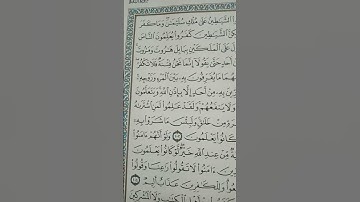 ٱلشَّيَٰطِينُ عَلَىٰ مُلْكِ سُلَيْمَٰنَ وَمَا كَفَرَ
ٱلشَّيَٰطِينَ كَفَرُوا۟ يُعَلِّمُونَ ٱلنَّاسَ
عَلَى ٱلْمَلَكَيْنِ بِبَابِلَ هَٰرُوتَ وَمَٰرُوتَ
حَتَّىٰ يَقُولَآ إِنَّمَا نَحْنُ فِتْنَةٌ فَلَا تَكْفُرْ
مَا يُفَرِّقُونَ بِهِۦ بَيْنَ ٱلْمَرْءِ وَزَوْجِهِۦ
بِهِۦ مِنْ أَحَدٍ إِلَّا بِإِذْنِ ٱللَّهِ وَيَتَعَلَّمُونَ
وَلَا يَنفَعُهُمْ وَلَقَدْ عَلِمُوا۟ لَمَنِ ٱشْتَرَىٰهُ
مِنْ خَلَٰقٍ وَلَبِئْسَ مَا شَرَوْا۟ بِهِۦٓ
كَانُوا۟ يَعْلَمُونَ ١٠٢ وَلَوْ أَنَّهُمْ ءَامَنُوا۟
مِّنْ عِندِ ٱللَّهِ خَيْرٌ لَّوْ كَانُوا۟ يَعْلَمُونَ
ءَامَنُوا۟ لَا تَقُولُوا۟ رَٰعِنَا وَقُولُوا۟
وَلِلْكَٰفِرِينَ عَذَابٌ أَلِيمٌ ١٠٤
ٱلْكِتَٰبِ وَلَا ٱلْمُشْرِكِينَ